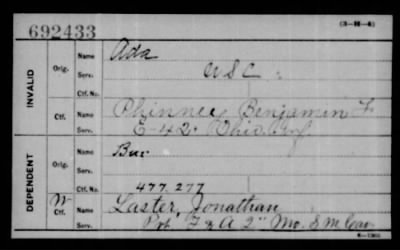 692433
(3—H—6)
INVALID
Orig.
Name
Ada
Serv.
USC
Ctf. No.
Ctf.
Name
Phinney Benjamin F
Serv.
E-42 Ohio Inf
DEPENDENT
Orig.
Name
Bur
Serv.
Ctf. No.
477,277
W
Ctf.
Name
Laster, Jonathan
Serv.
Pvt F & A 2" Mo. S.M. Cav